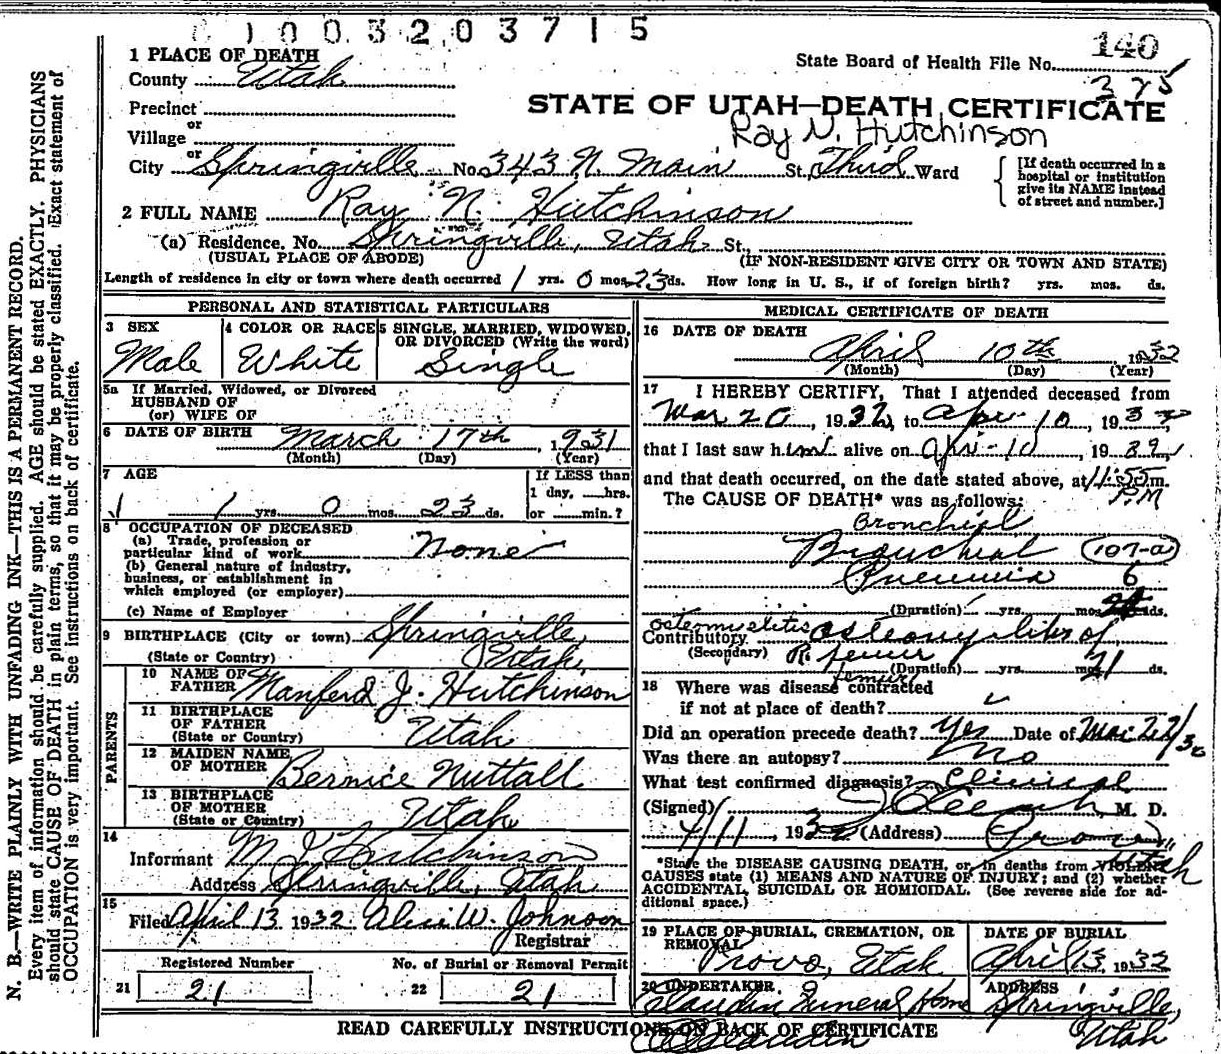 1003203715
140
State Board of Health File No. 375
1 PLACE OF DEATH
County Utah
Precinct
or
Village
or
City Springville No. 343 N. Main St. Third Ward
STATE OF UTAH—DEATH CERTIFICATE
Ray N. Hutchinson
[If death occurred in a
hospital or institution
give its NAME instead
of street and number.]
2 FULL NAME Ray N. Hutchinson
(a) Residence. No. Springville, Utah St.,
(USUAL PLACE OF ABODE) (IF NON-RESIDENT GIVE CITY OR TOWN AND STATE)
Length of residence in city or town where death occurred 1 yrs. 0 mos. 23 ds. How long in U. S., if of foreign birth? yrs. mos. ds.
PERSONAL AND STATISTICAL PARTICULARS
3 SEX
Male
4 COLOR OR RACE
White
5 SINGLE, MARRIED, WIDOWED,
OR DIVORCED (Write the word)
Single
5a If Married, Widowed, or Divorced
HUSBAND OF
(or) WIFE OF
6 DATE OF BIRTH March 17th, 1931
(Month) (Day) (Year)
7 AGE
1 yrs. 0 mos. 23 ds.
If LESS than
1 day, hrs.
or min.?
8 OCCUPATION OF DECEASED
(a) Trade, profession or
particular kind of work None
(b) General nature of industry,
business, or establishment in
which employed (or employer)
(c) Name of Employer
9 BIRTHPLACE (City or town) Springville,
(State or Country) Utah
PARENTS
10 NAME OF
FATHER Manferd J. Hutchinson
11 BIRTHPLACE
OF FATHER
(State or Country) Utah
12 MAIDEN NAME
OF MOTHER Bernice Nuttall
13 BIRTHPLACE
OF MOTHER
(State or Country) Utah
14
Informant M J Hutchinson
Address Springville, Utah
15
Filed April 13 1932 W. Johnson
Registrar
Registered Number
21 21
No. of Burial or Removal Permit
22 21
MEDICAL CERTIFICATE OF DEATH
16 DATE OF DEATH
April 10th, 1932
(Month) (Day) (Year)
17 I HEREBY CERTIFY, That I attended deceased from
Mar 20, 1932, to Apr 10 1932
that I last saw him alive on Apr-10, 19
and that death occurred, on the date stated above, at 11:55 m.
P.M
The CAUSE OF DEATH* was as follows:
Bronchial
Bronchial (107-a)
Pneumonia 6
(Duration) yrs. mos. ds.
osteomyelitis
Contributory Osteomyelitis of
(Secondary) R. femur
femur
(Duration) yrs. mos. 21 ds.
18 Where was disease contracted
if not at place of death?
Did an operation precede death? Yes Date of Mar 22/32
Was there an autopsy? No
What test confirmed diagnosis? Clinical
(Signed) M. D.
4/11, 1932 (Address) Provo
Utah
*State the DISEASE CAUSING DEATH, or, in deaths from VIOLENT
CAUSES state (1) MEANS AND NATURE OF INJURY; and (2) whether
ACCIDENTAL, SUICIDAL OR HOMICIDAL. (See reverse side for ad-
ditional space.)
19 PLACE OF BURIAL, CREMATION, OR
REMOVAL
Provo, Utah
DATE OF BURIAL
April 13, 1932
20 UNDERTAKER
Claudin Funeral Home
ADDRESS
Springville,
Utah
READ CAREFULLY INSTRUCTIONS ON BACK OF CERTIFICATE
N. B.—WRITE PLAINLY WITH UNFADING INK—THIS IS A PERMANENT RECORD.
Every item of information should be carefully supplied. AGE should be stated EXACTLY. PHYSICIANS
should state CAUSE OF DEATH in plain terms, so that it may be properly classified. Exact statement of
OCCUPATION is very important. See instructions on back of certificate.